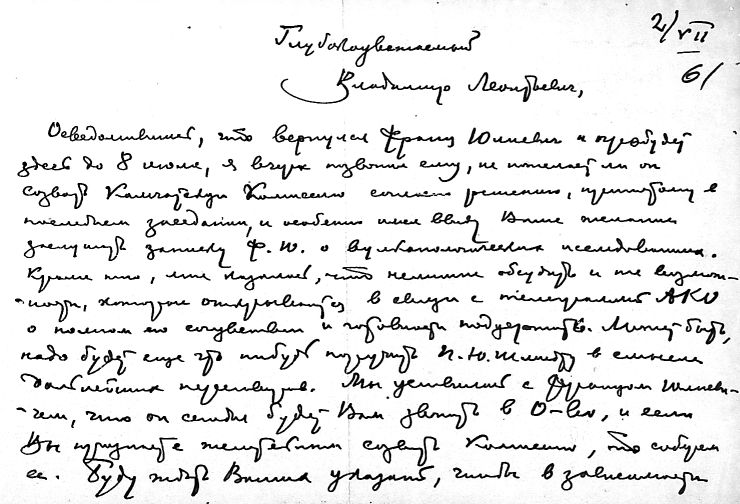 2/VII
61
Глубокоуважаемый
Владимир Леонтьевич,
Осведомившись, что вернулся Франц Юльевич и пробудет
здесь до 8 июля, я вчера позвонил ему, не пожелает ли он
созвать Камчатскую Комиссию согласно решению, принятому в
последнем заседании, и особенно имея ввиду Ваше желание
заслушать записку Ф. Ю. о вулканологических исследованиях.
Кроме того, мне казалось, что нелишне обсудить и те возмож-
-ности, которые открываются в связи с телеграммой АКО
о полном его сочувствии и готовности поддержать. Может быть,
надо будет еще что нибудь поручить П. Ю. Шмидту в смысле
дальнейших переговоров. Мы условились с Францом Юльеви-
-чем, что он сегодня будет Вам звонить в О-во, и если
Вы признаете желательным созвать Комиссию, то соберем
ее. Буду ждать Ваших указаний, чтобы в зависимости